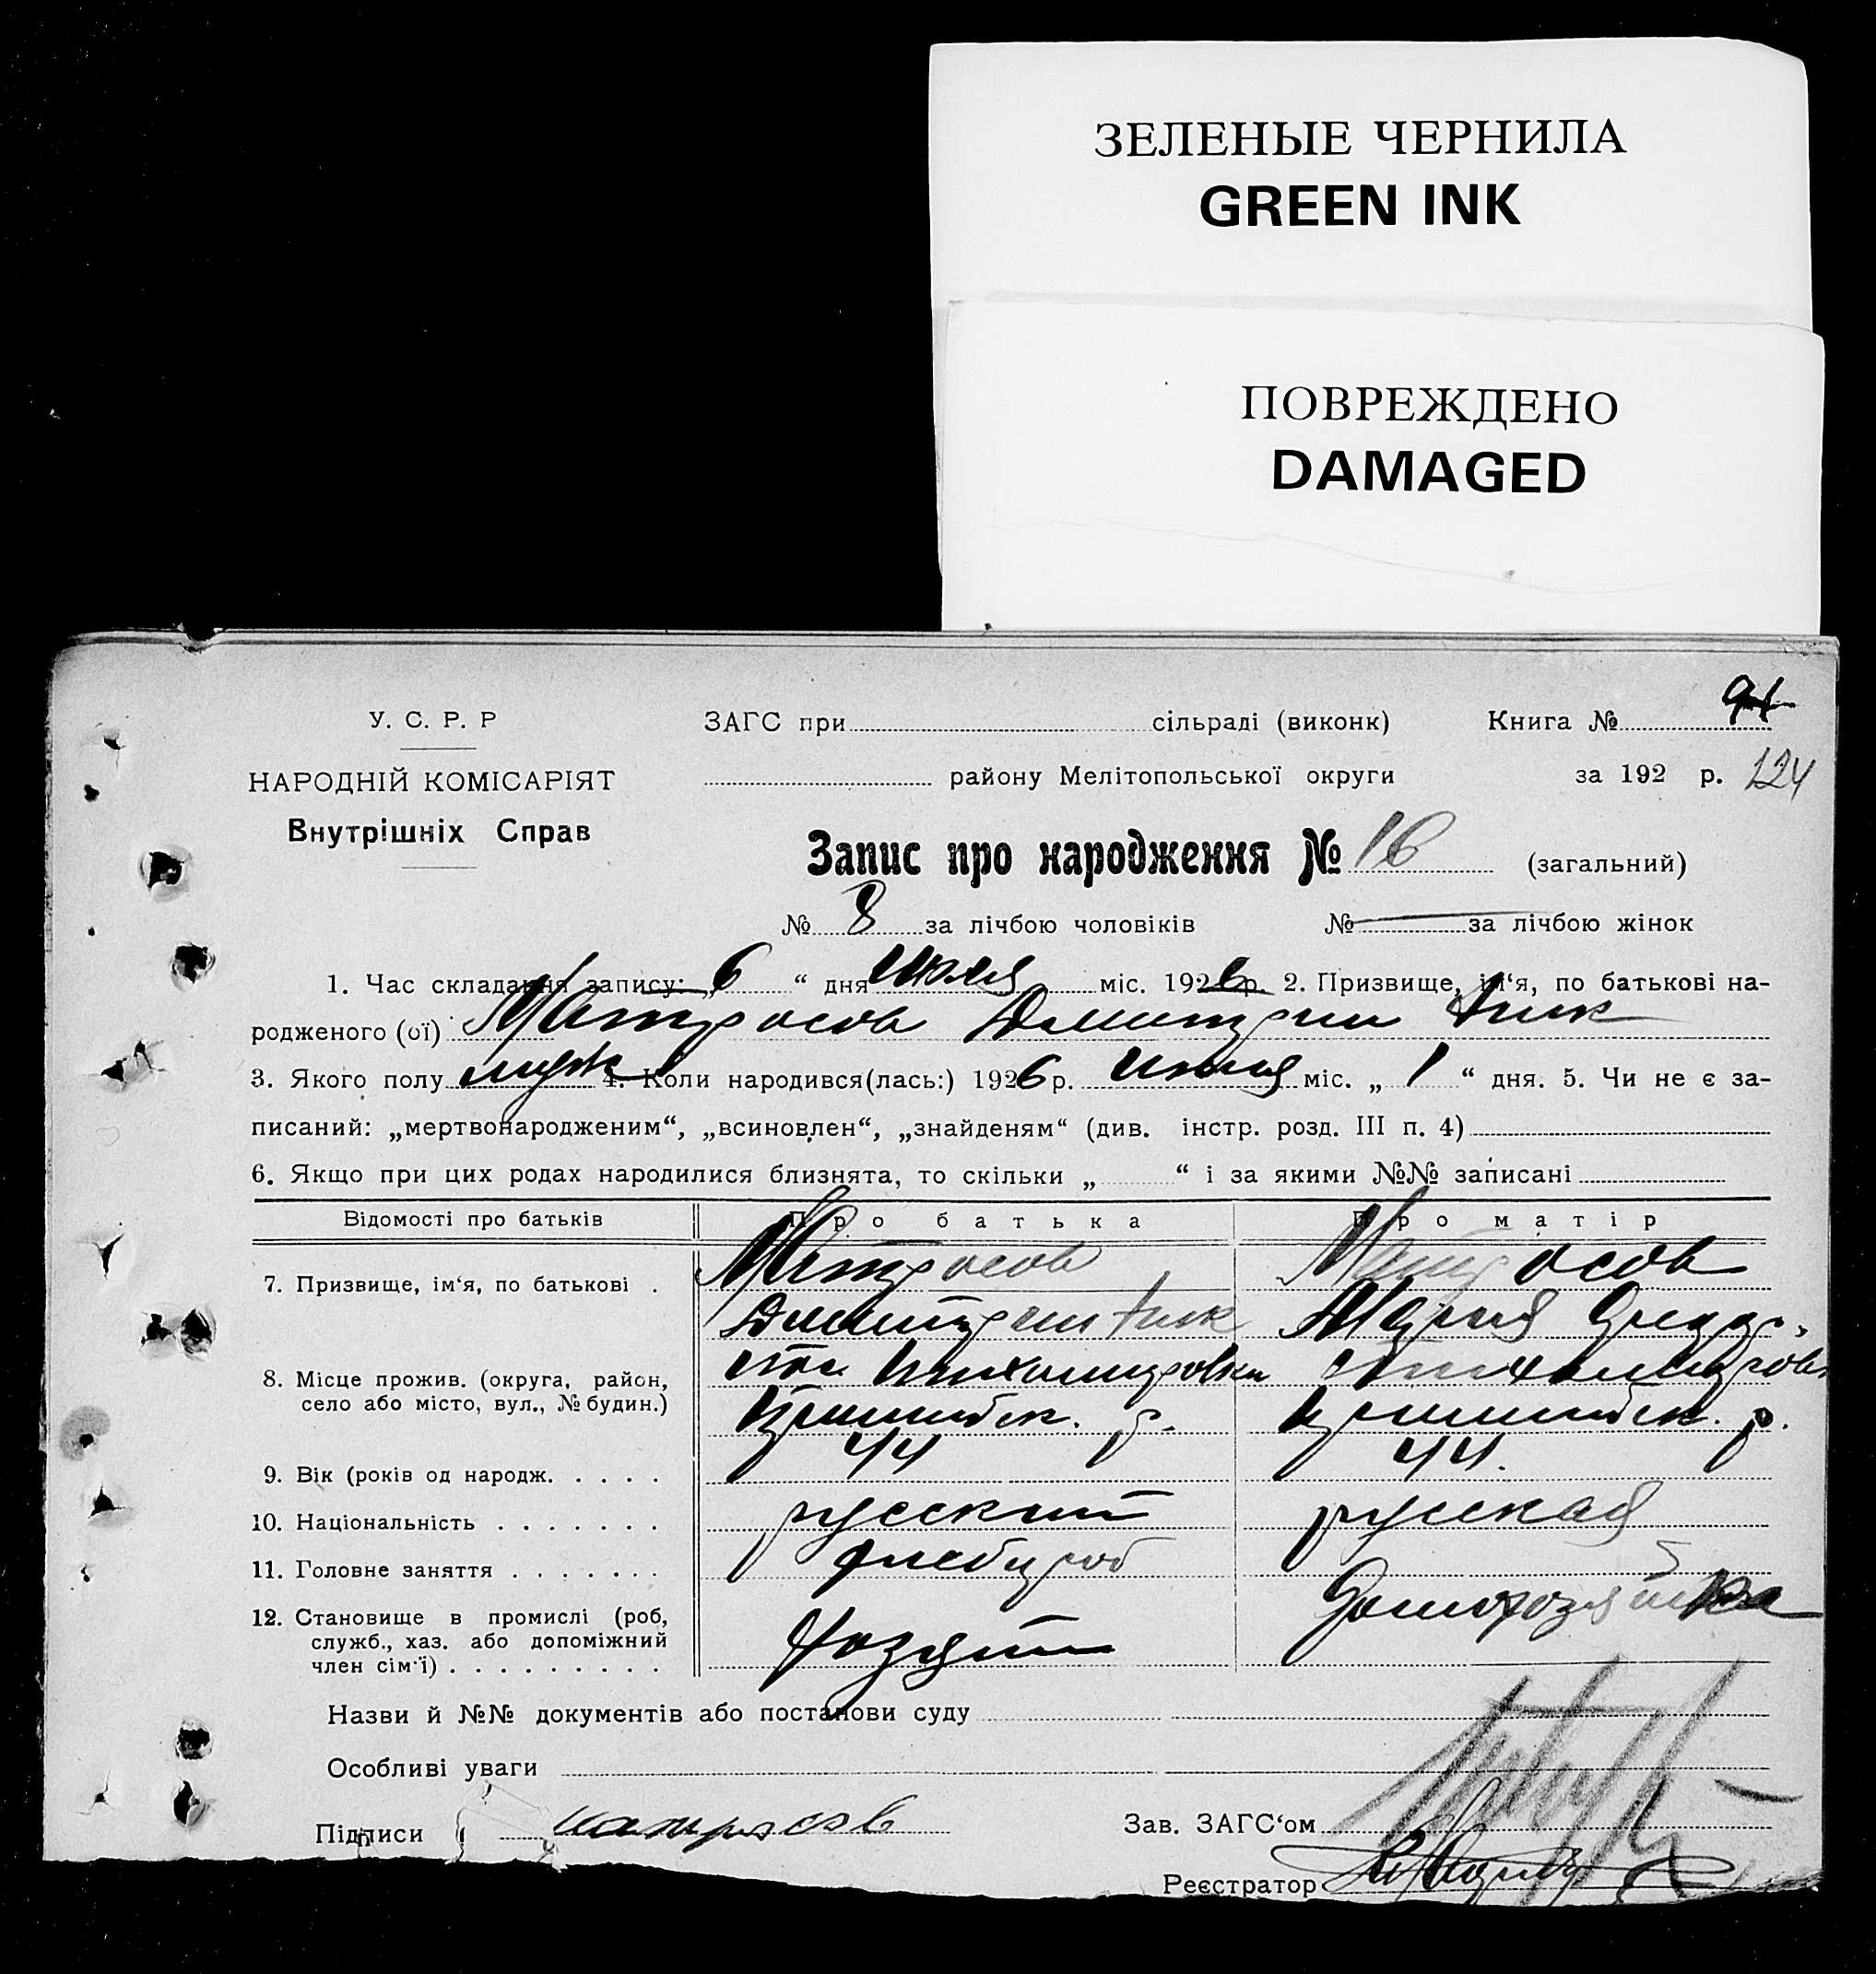 ЗЕЛЕНЫЕ ЧЕРНИЛА
GREEN INK
ПОВРЕЖДЕНО
DAMAGED
У. С. Р. Р
НАРОДНІЙ КОМІСАРІЯТ
Внутрішніх Справ
ЗАГС при сільраді (виконк) Книга №
району Мелітопольської округи за 192 р. 124
Запис про народження № 16 (загальний)
№ 8 за лічбою чоловіків № за лічбою жінок
1. Час складання запису: „6“ дня июля міс. 1926 р. 2. Призвище, ім‘я, по батькові на-
родженого (ої) Матросов Дмитрий
3. Якого полу муж 4. Коли народився(лась:) 1926 р. міс. „1“ дня. 5. Чи не є за-
писаний: „мертвонародженим“, „всиновлен“, „знайденям“ (див. інстр. розд. III п. 4)
6. Якщо при цих родах народилися близнята, то скільки „ “ і за якими №№ записані
Відомості про батьків Про батька Про матір
7. Призвище, ім‘я, по батькові . Матросов Матросов
Дмитрий Мария
8. Місце прожив. (округа, район,
село або місто, вул., № будин.)
р. р.
9. Вік (років од народж. . . . . 44 44.
10. Національність . . . . . . . русский русская
11. Головне заняття . . . . . . . хлебороб
Домохозяйка
12. Становище в промислі (роб,
служб., хаз. або допоміжний
член сім‘ї) . . . . . . . . . Хозяин
Назви й №№ документів або постанови суду
Особливі уваги
Підписи матросов Зав. ЗАГС‘ом
Реєстратор